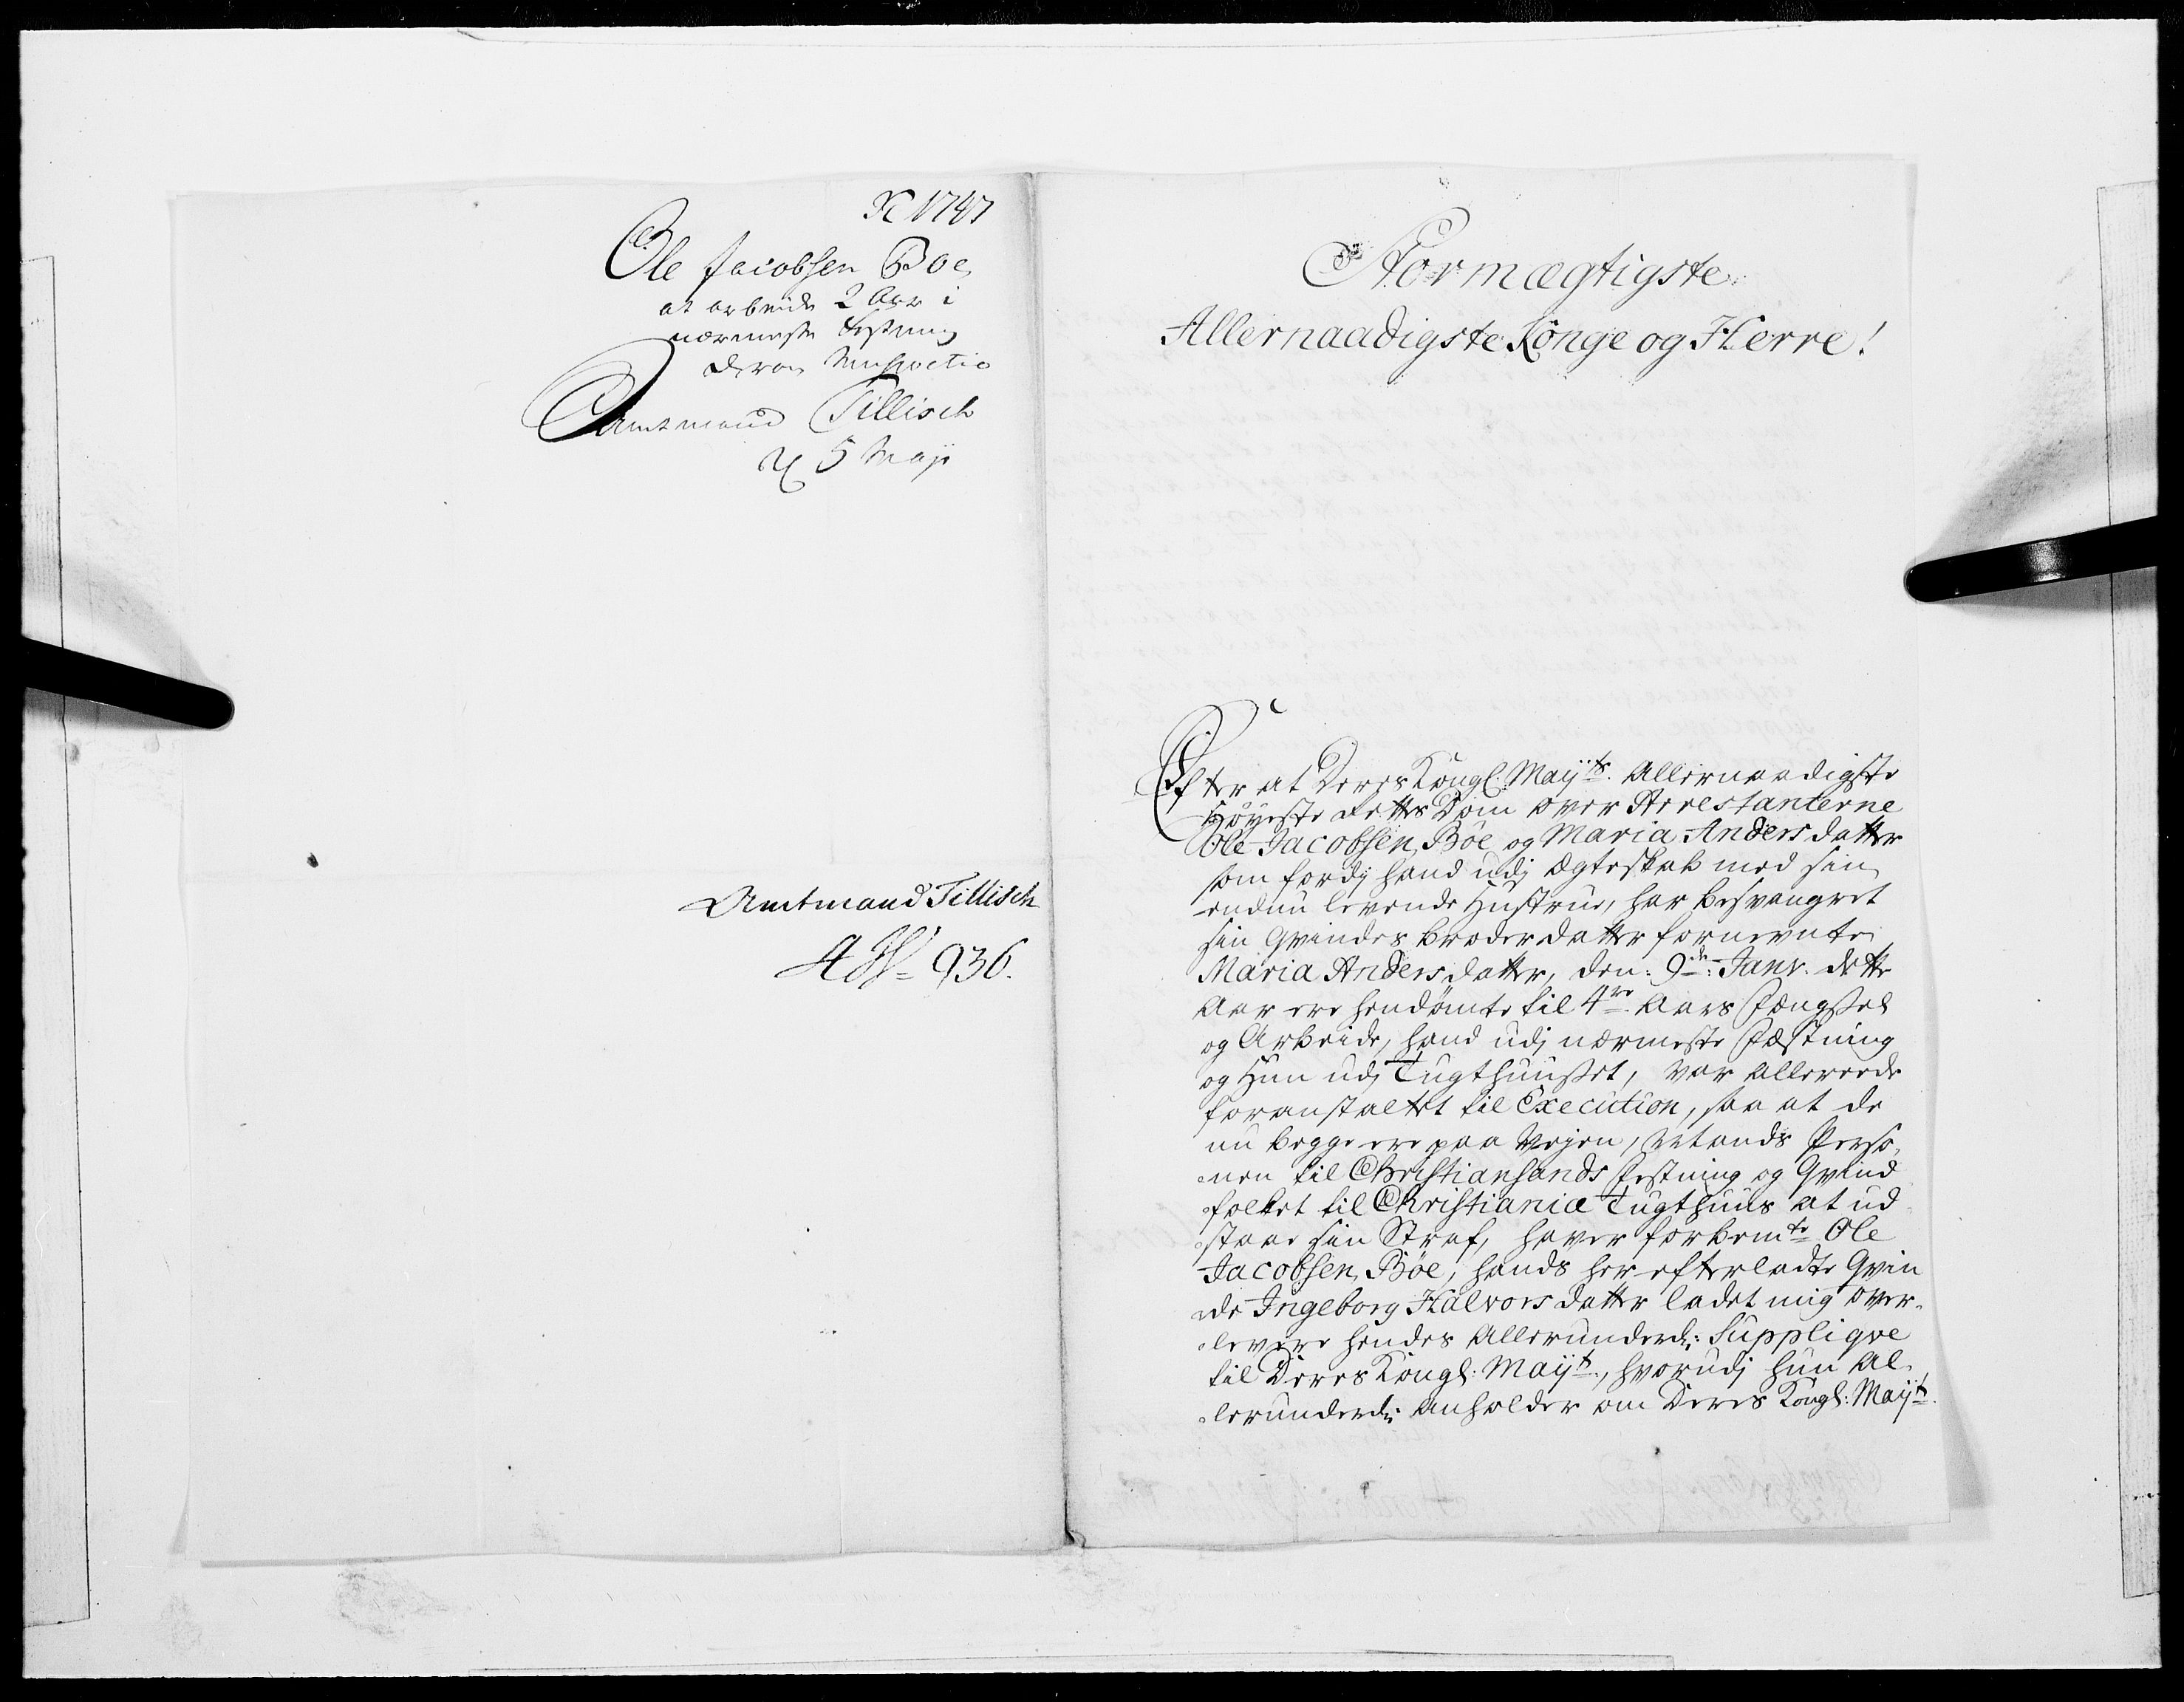 1747
Ole Jacobsen Boe
at arbeide 2 Aar i
nærmeste Festning
Amtmand Tillisch
5 Maji
Amtmand Tillisch
936.
Stormægtigste
Allernaadigste Konge og Herre!
Efter at Deres Kongl. Mayts. Allernaadigste
Høyeste Retts Dom over Arrestanterne
Ole Jacobsen Böe og Maria Anders datter
som fordj hand udj Ægteskab med sin
endnu levende Hustrue, har besvangret
sin Qvindes broder datter fornevnte
Maria Anders datter, den: 9de: Janv. dette
Aar ere hendømte til 4re Aars Fængsel
og Arbeide, hand udj nærmeste Fæstning
og Hun udj Tugthuuset, var allereede
foranstaltet til Execution, saa at de
nu begge ere paa Vejen, Mands Perso-
nen til Christiansands Festning og Qvind
folket til Christiania Tugthuus at ud
staae sin Straf, haver forbemte Ole
Jacobsen Böe, hands her efterladte Qvin
de Ingeborg Halvors datter ladet mig over-
levere hendes Allerunderd: Suppliqve
til Deres Kongl: Mayt., hvorudj hun Al-
lerunderd: anholder om Deres Kongl: Mayt.